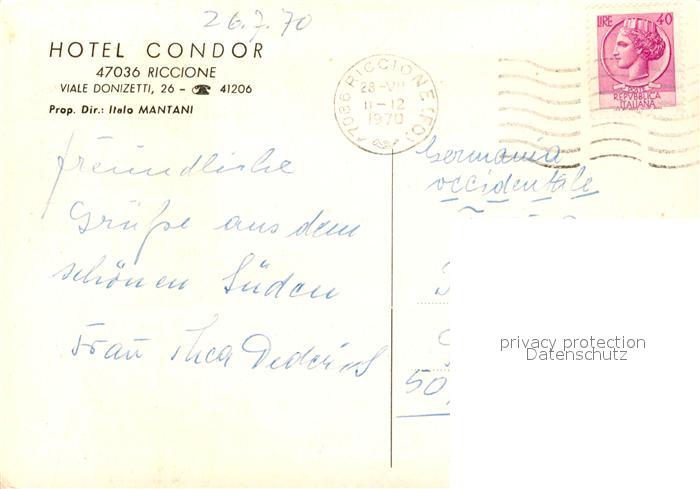 26.7.70
HOTEL CONDOR
47036 RICCIONE
VIALE DONIZETTI, 26 - ☎ 41206
Prop. Dir.: Italo MANTANI
47036 RICCIONE (FO)
28-VII
11-12
1970
LIRE 40
POSTE
REPUBBLICA
ITALIANA
freundliche
Grüße aus dem
schönen Süden
Frau Thea Dederichs
Germania
occidentale
50
privacy protection
Datenschutz